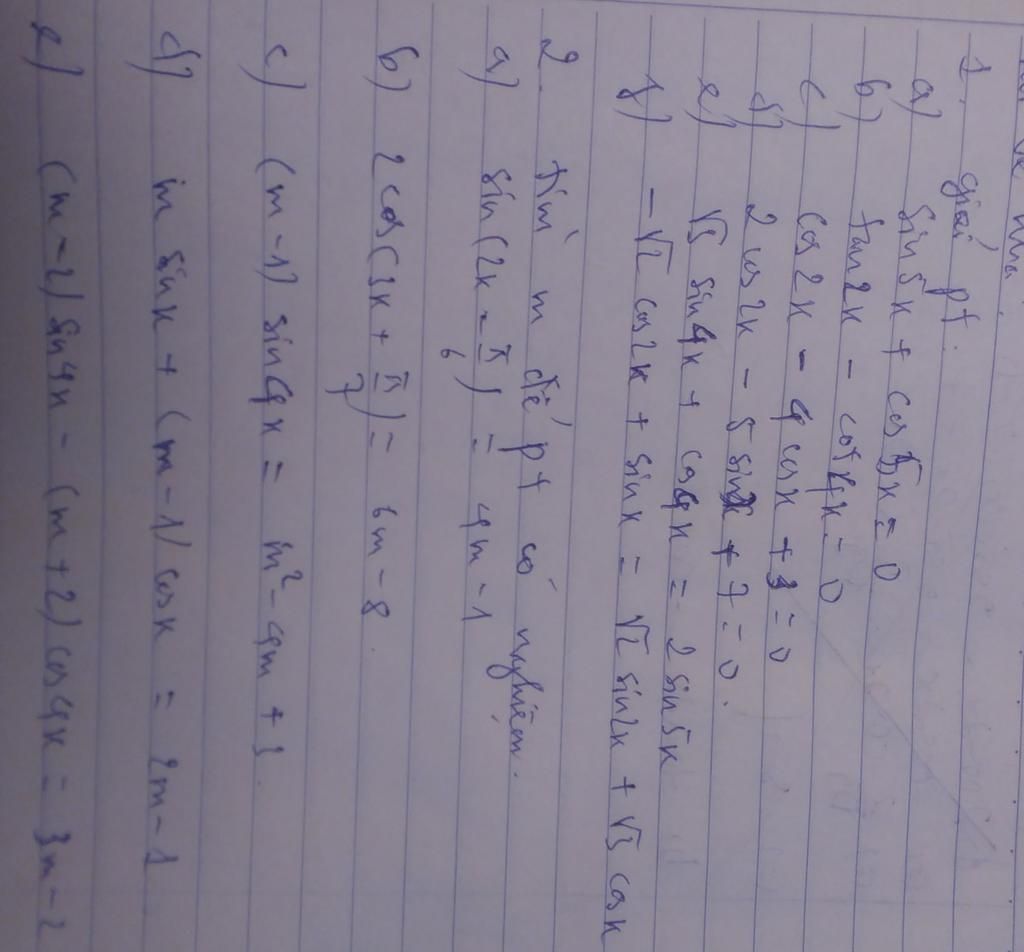 1. giải pt.
a) sin5x + cos5x = 0
b) tan2x - cot4x = 0
c) cos2x - 4cosx + 3 = 0
d) 2cos2x - 5sinx + 7 = 0.
e) √3 sin4x + cos4x = 2sin5x
f) -√2 cos2x + sinx = √2 sin2x + √3 cosx
2. tìm m để pt có nghiệm.
a) sin(2x - π/6) = 4m - 1
b) 2cos(3x + π/7) = 6m - 8.
c) (m - 1) sin4x = m² - 4m + 3.
d) m sinx + (m - 1) cosx = 2m - 1
e) (m - 2) sin4x - (m + 2) cos4x = 3m - 2